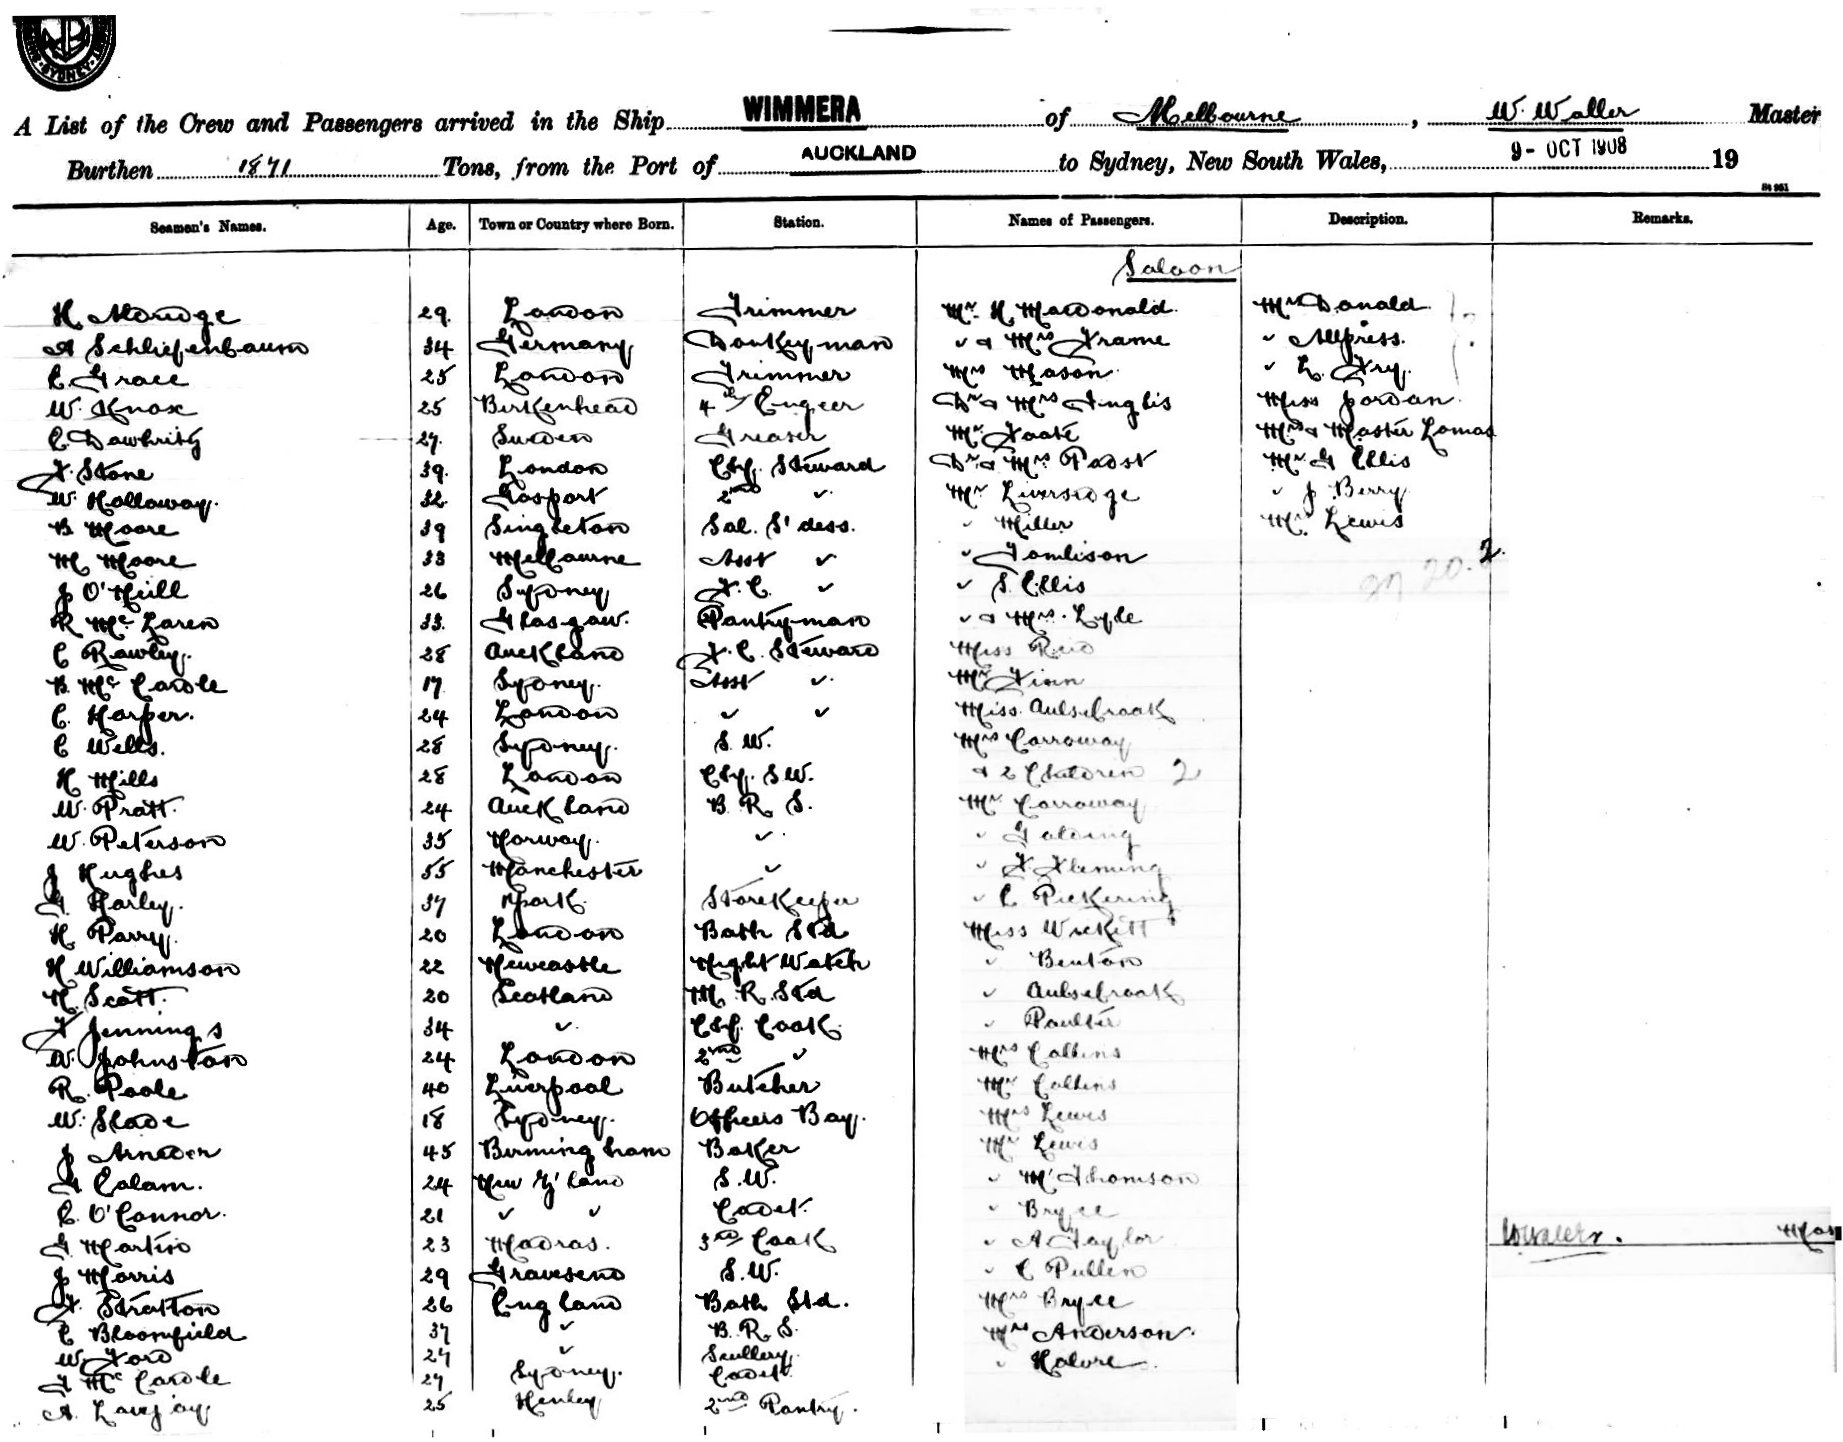 SYDNEY
A List of the Crew and Passengers arrived in the Ship WIMMERA of Melbourne, W. Waller Master
Burthen 1871 Tons, from the Port of AUCKLAND to Sydney, New South Wales, 9- OCT 1908 19
Seamen's Names. Age. Town or Country where Born. Station. Names of Passengers. Description. Remarks.
Saloon
H. Aldridge 29. London Trimmer Mr. H. MacDonald. Mr Donald
A Schliefenbaum 34 Germany Donkeyman " & Mrs Frame " Allpress.
C. Grace 25 London Trimmer Mrs Mason " L. Fry.
W. Knox 25 Birkenhead 4th Engeer Dr & Mrs Inglis Miss Jordan.
C. 27. Sweden Greaser Mr. Foote Mrs & Master Lomas
F. Stone 39. London Chf. Steward Dr. & Mrs Pabst Mr G Ellis
W. Holloway. 32 Gosport 2nd " Mr Liversedge " J Berry
B Moore 39 Singleton Sal. S'dess. " Miller Mr. Lewis
M Moore 33 Melbourne Asst " " Tomlison 2.
J O'Neill 26 Sydney F. C. " " S. Ellis 20.
R McLaren 33. Glasgow. Pantryman " & Mrs. Lyle
C Rawley. 28 Auckland F. C. Steward Miss Reid
B. McCardle 17 Sydney. Asst " Mr Finn
C. Harper. 24 London " " Miss Aulsebrook
C Wells. 28 Sydney. S. W. Mrs Carroway
H Mills 28 London Chf. S.W. & 2 Children 2
W. Pratt. 24 Auckland B. R. S. Mr Carroway
W. Peterson 35 Norway. " " Golding
J Hughes 55 Manchester " " F. Fleming
G. Harley. 37 York. Storekeeper " C Pickering
H Parry. 20 London Bath Std Miss Wickett
H Williamson 22 Newcastle Night Watch " Benton
H. Scott. 20 Scotland M. R. Std " Aulsebrook
F Jennings 34 " Chf. Cook. " Poulter
W. Johnston 24 London 2nd " Mrs Collins
R. Poole 40 Liverpool Butcher Mr Collins
W. Slade 18 Sydney. Officers Boy. Mrs Lewis
J Arneder 45 Birmingham Baker Mr Lewis
G Calam. 24 New Z'land S.W. " McThomson
C. O'Connor. 21 " " Cadet. " Bryce
G Martin 23 Madras. 3rd Cook " A Taylor WWaller. Mas
J Morris 29 Gravesend S.W. " C Pullen
F. Stratton 26 England Bath Std. Mrs Bryce
C Bloomfield 37 " B. R. S. Mrs Anderson.
W. Ford 27 " Scullery. " Halvre
J McCardle 27 Sydney. Cadet
A. Lovejoy 25 Henley 2nd Pantry.